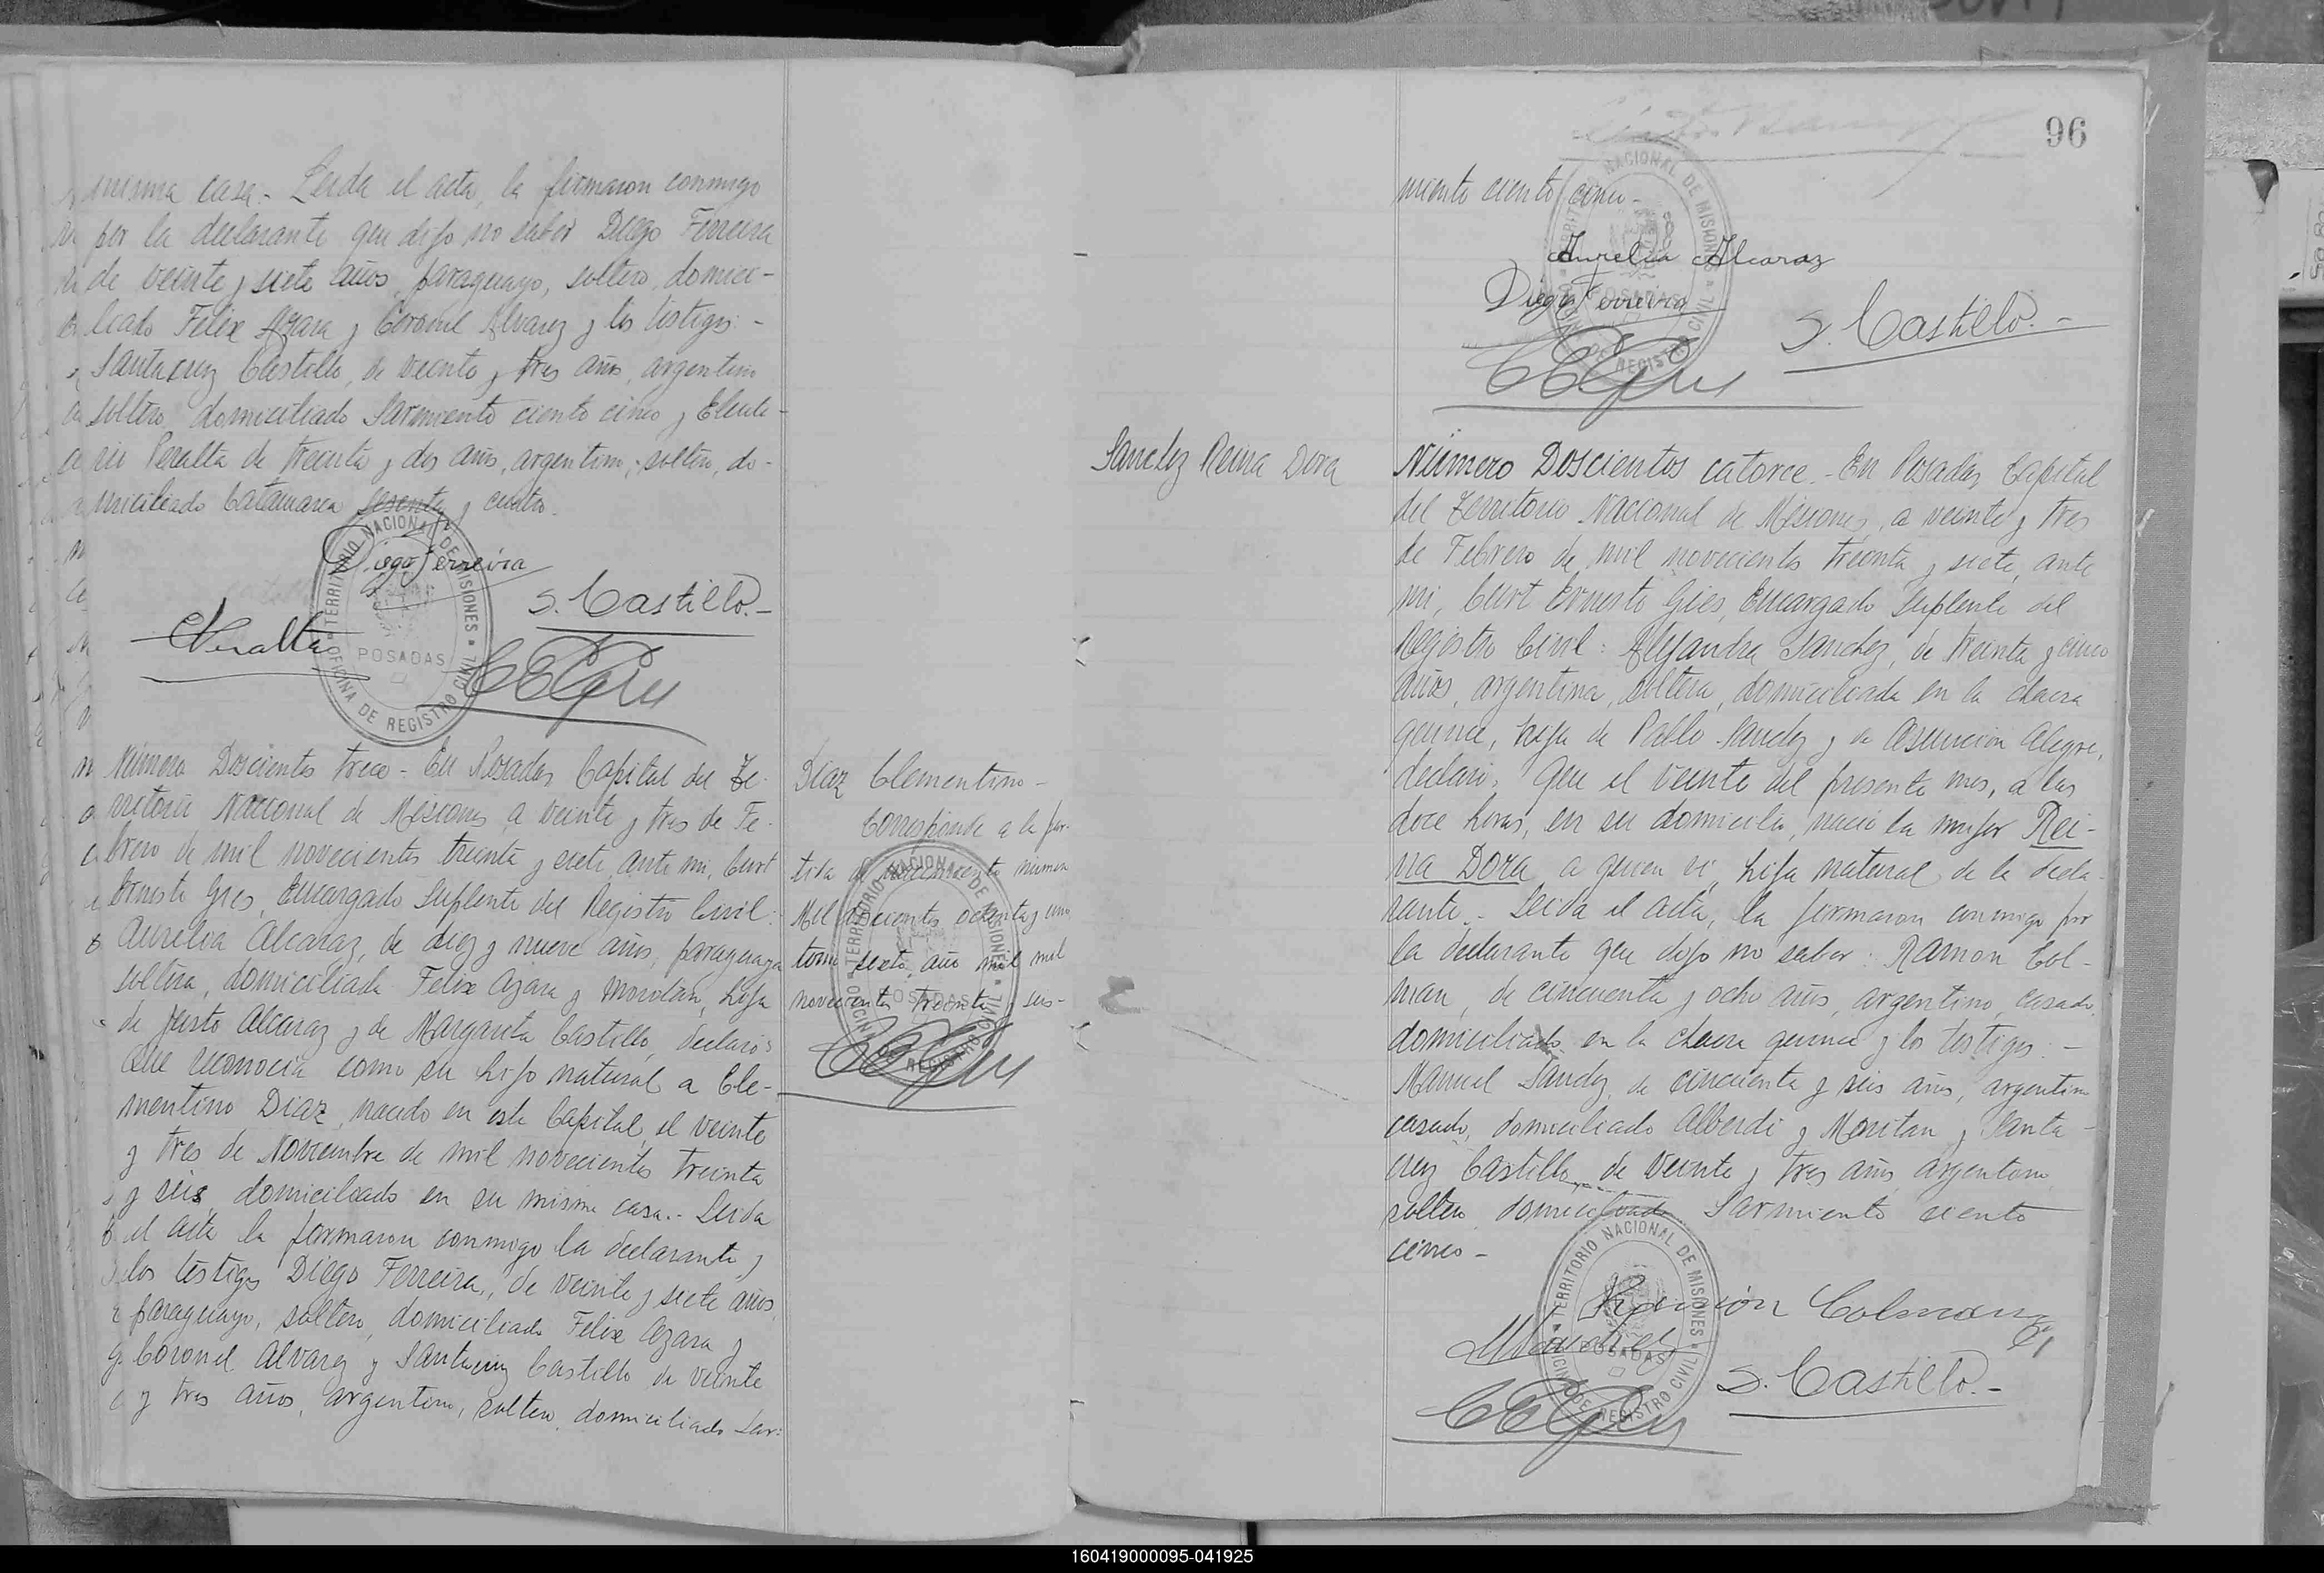 misma casa.- Leida el acta, la firmaron conmigo
por la declarante que dijo no saber Diego Ferreira
de veinte y siete años, paraguayo, soltero, domici-
liado Felix Azara y Coronel Alvarez y los testigos: -
Santacruz Castillo, de veinte y tres años, argentino
soltero, domiciliado Sarmiento ciento cinco y Eleute-
rio Peralta de treinta y dos años, argentino, soltero, do-
miciliado Catamarca sesenta y cuatro.
Diego Ferreira
S. Castillo.-
EPeralta
CEGies
TERRITORIO NACIONAL DE MISIONES
POSADAS
OFICINA DE REGISTRO CIVIL
Número Doscientos trece - En Posadas, Capital del Te-
rritorio Nacional de Misiones, a veinte y tres de Fe-
brero de mil novecientos treinta y siete, ante mi, Curt
Ernesto Gies, Encargado Suplente del Registro Civil:
Aurelia Alcaraz, de diez y nueve años, paraguaya
soltera, domiciliada Felix Azara y Moritán, hija
de Justo Alcaraz y de Margarita Castillo, declaró:
Que reconocía como su hijo natural a Cle-
mentino Diaz, nacido en esta Capital, el veinte
y tres de Noviembre de mil novecientos treinta
y seis, domiciliado en su misma casa.- Leida
el acta la firmaron conmigo la declarante y
los testigos Diego Ferreira, de veinte y siete años
paraguayo, soltero, domiciliado Felix Azara y
Coronel Alvarez y Santacruz Castillo de veinte
y tres años, argentino, soltero, domiciliado Sar-
Diaz Clementino -
Corresponde a la par-
tida de nacimiento número
Mil doscientos ochenta y uno
tomo sexto, año mil mil
novecientos treinta y seis-
CEGies
TERRITORIO NACIONAL DE MISIONES
POSADAS
OFICINA DE REGISTRO CIVIL
96
miento ciento cinco-
Aurelia Alcaraz
Diego Ferreira
S. Castillo.-
CEGies
TERRITORIO NACIONAL DE MISIONES
POSADAS
OFICINA DE REGISTRO CIVIL
Sanchez Reina Dora
Número Doscientos catorce.- En Posadas, Capital
del Territorio Nacional de Misiones, a veinte y tres
de Febrero de mil novecientos treinta y siete, ante
mi, Curt Ernesto Gies, Encargado Suplente del
Registro Civil: Alejandra Sanchez, de treinta y cinco
años, argentina, soltera, domiciliada en la chacra
quince, hija de Pablo Sanchez y de Asunción Alegre,
declaró: Que el veinte del presente mes, a las
doce horas, en su domicilio, nació la mujer Rei-
na Dora a quien vi, hija natural de la decla-
rante.- Leida el acta, la firmaron conmigo por
la declarante que dijo no saber: Ramon Col-
man, de cincuenta y ocho años, argentino, casado,
domiciliado en la chacra quince y los testigos: -
Manuel Sanchez, de cincuenta y seis años, argentino
casado, domiciliado Alberdi y Moritan y Santa-
cruz Castillo, de veinte y tres años argentino
soltero domiciliado Sarmiento ciento
cinco -
Ramón Colman
MSanchez
S. Castillo.-
CEGies
TERRITORIO NACIONAL DE MISIONES
POSADAS
OFICINA DE REGISTRO CIVIL
160419000095-041925